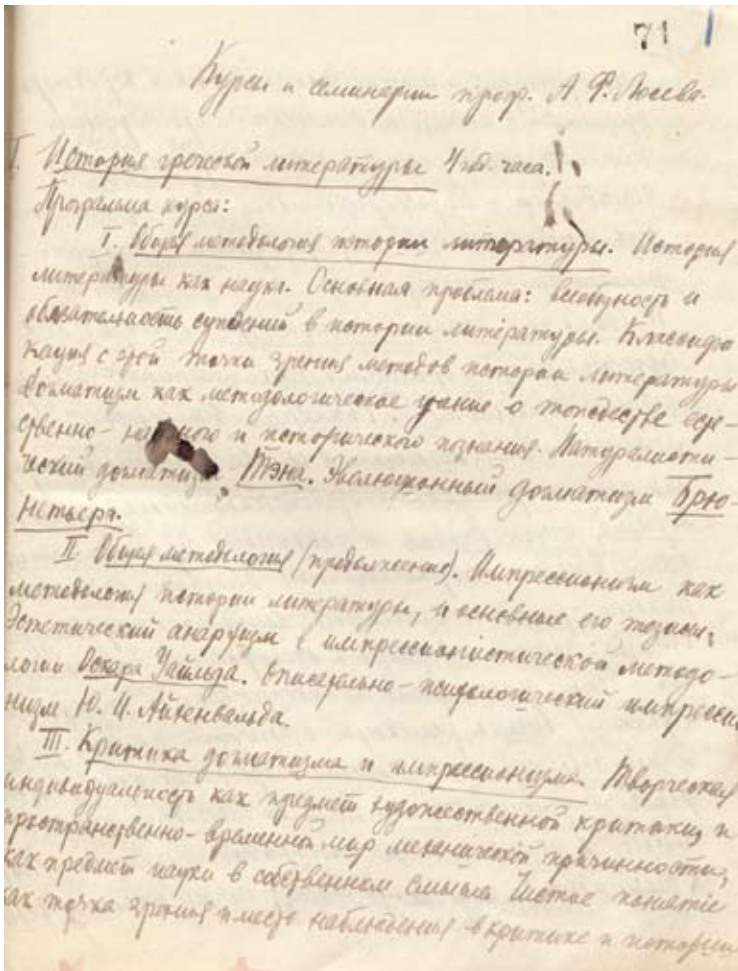 71
Курсы и семинарии проф. А. Ф. Лосева.
I. История греческой литературы 4 год. часа.
Программа курса:
I. Общая методология истории литературы. История
литературы как наука. Основная проблема: всеобщность и
обязательность суждений в истории литературы. Классифи-
кация с этой точки зрения методов истории литературы
Догматизм как методологическое учение о тождестве есте-
ственно-научного и исторического познания. Натуралисти-
ческий догматизм Тэна. Эволюционный догматизм Брю-
нетьера.
II. Общая методология (продолжение). Импрессионизм как
методология истории литературы, и основные его тезисы.
Эстетический анархизм в импрессионистической методо-
логии Оскара Уайльда. описательно-психологический импрессио
низм Ю. И. Айхенвальда.
III. Критика догматизма и импрессионизма. Творческая
индивидуальность как предмет художественной критики, и
пространственно-временной мир механической причинности,
как предмет науки в собственном смысле. Чистое понятіе
как точка зрения и место наблюдения в критике и истории